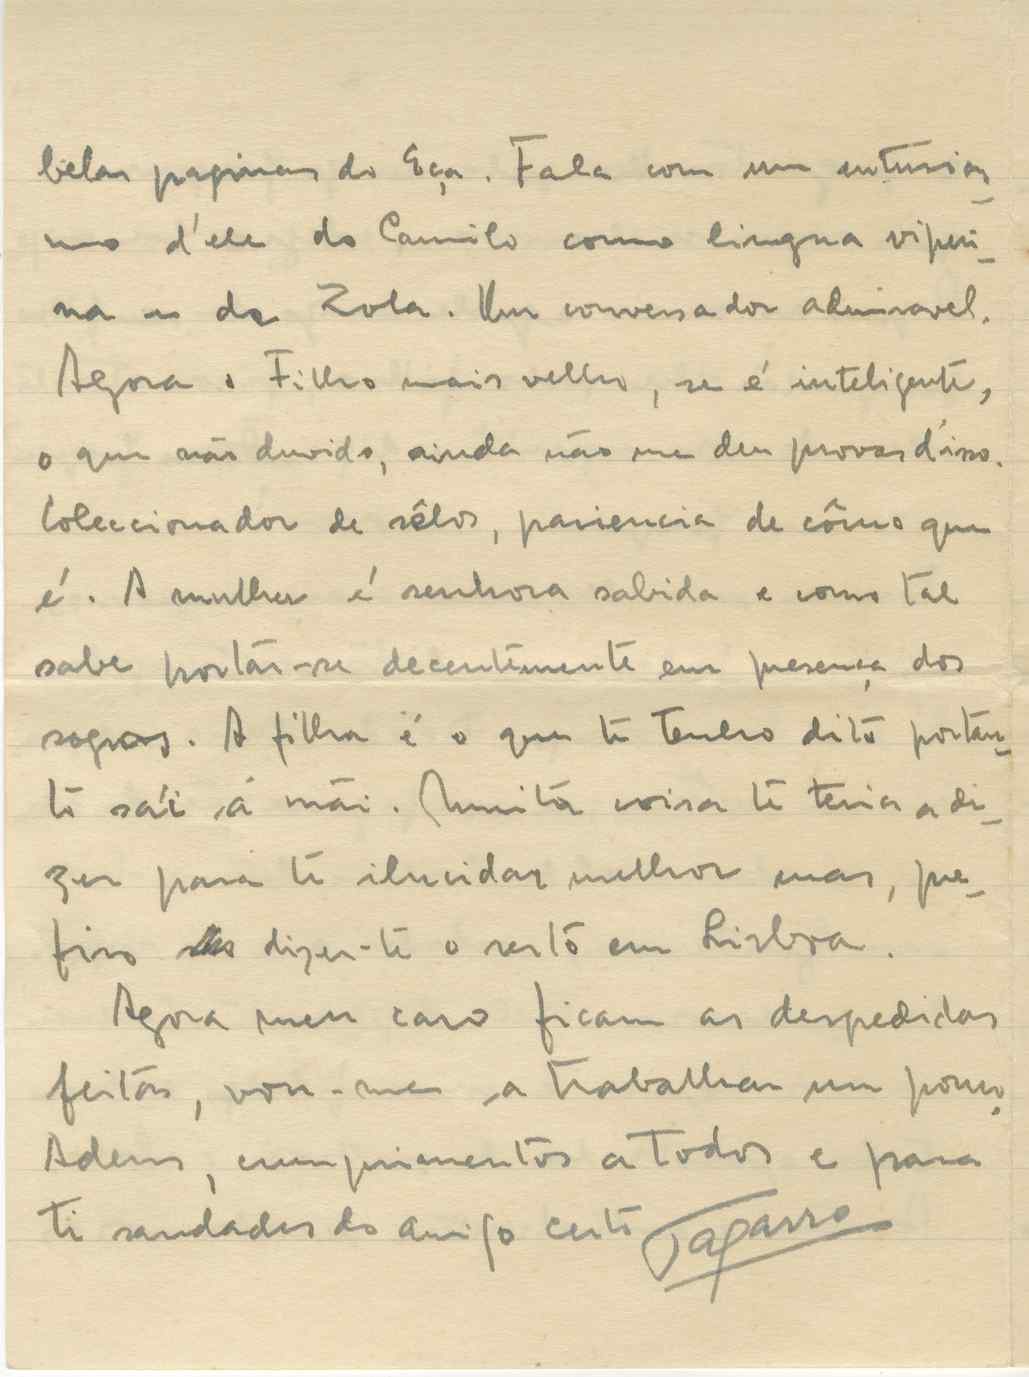 belas paginas do Eça. Fala com um entusias-
mo d'ele do Camilo como lingua viperi-
na e de Zola. Um conversador admiravel.
Agora o Filho mais velho, se é inteligente,
o que não duvido, ainda não me deu provas d'isso.
Coleccionador de sêlos, paciencia de cômo que
é. A mulher é senhora sabida e como tal
sabe portár-se decentemente em presença dos
sogros. A filha é o que te tenho dito portan-
to sái á mãi. Muita coisa te teria a di-
zer para te ilucidar melhor mas, pre-
firo dizer-te o resto em Lisboa.
Agora meu caro ficam as despedidas
feitas, vou-me a trabalhar um pouco,
Adeus, cumprimentos a todos e para
ti saudades do amigo certo Tagarro